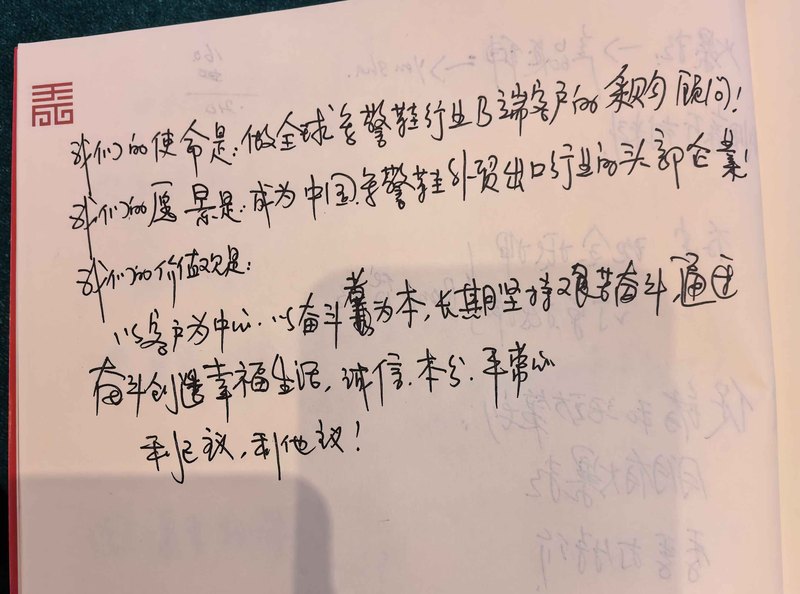 我们的使命是：做全球军警鞋行业B端客户的采购顾问！
我们的愿景是：成为中国军警鞋外贸出口行业的头部企业！
我们的价值观是：
以客户为中心．以奋斗者为本，长期坚持艰苦奋斗，通过
奋斗创造幸福生活，诚信．本分．平常心
利己议，利他议！